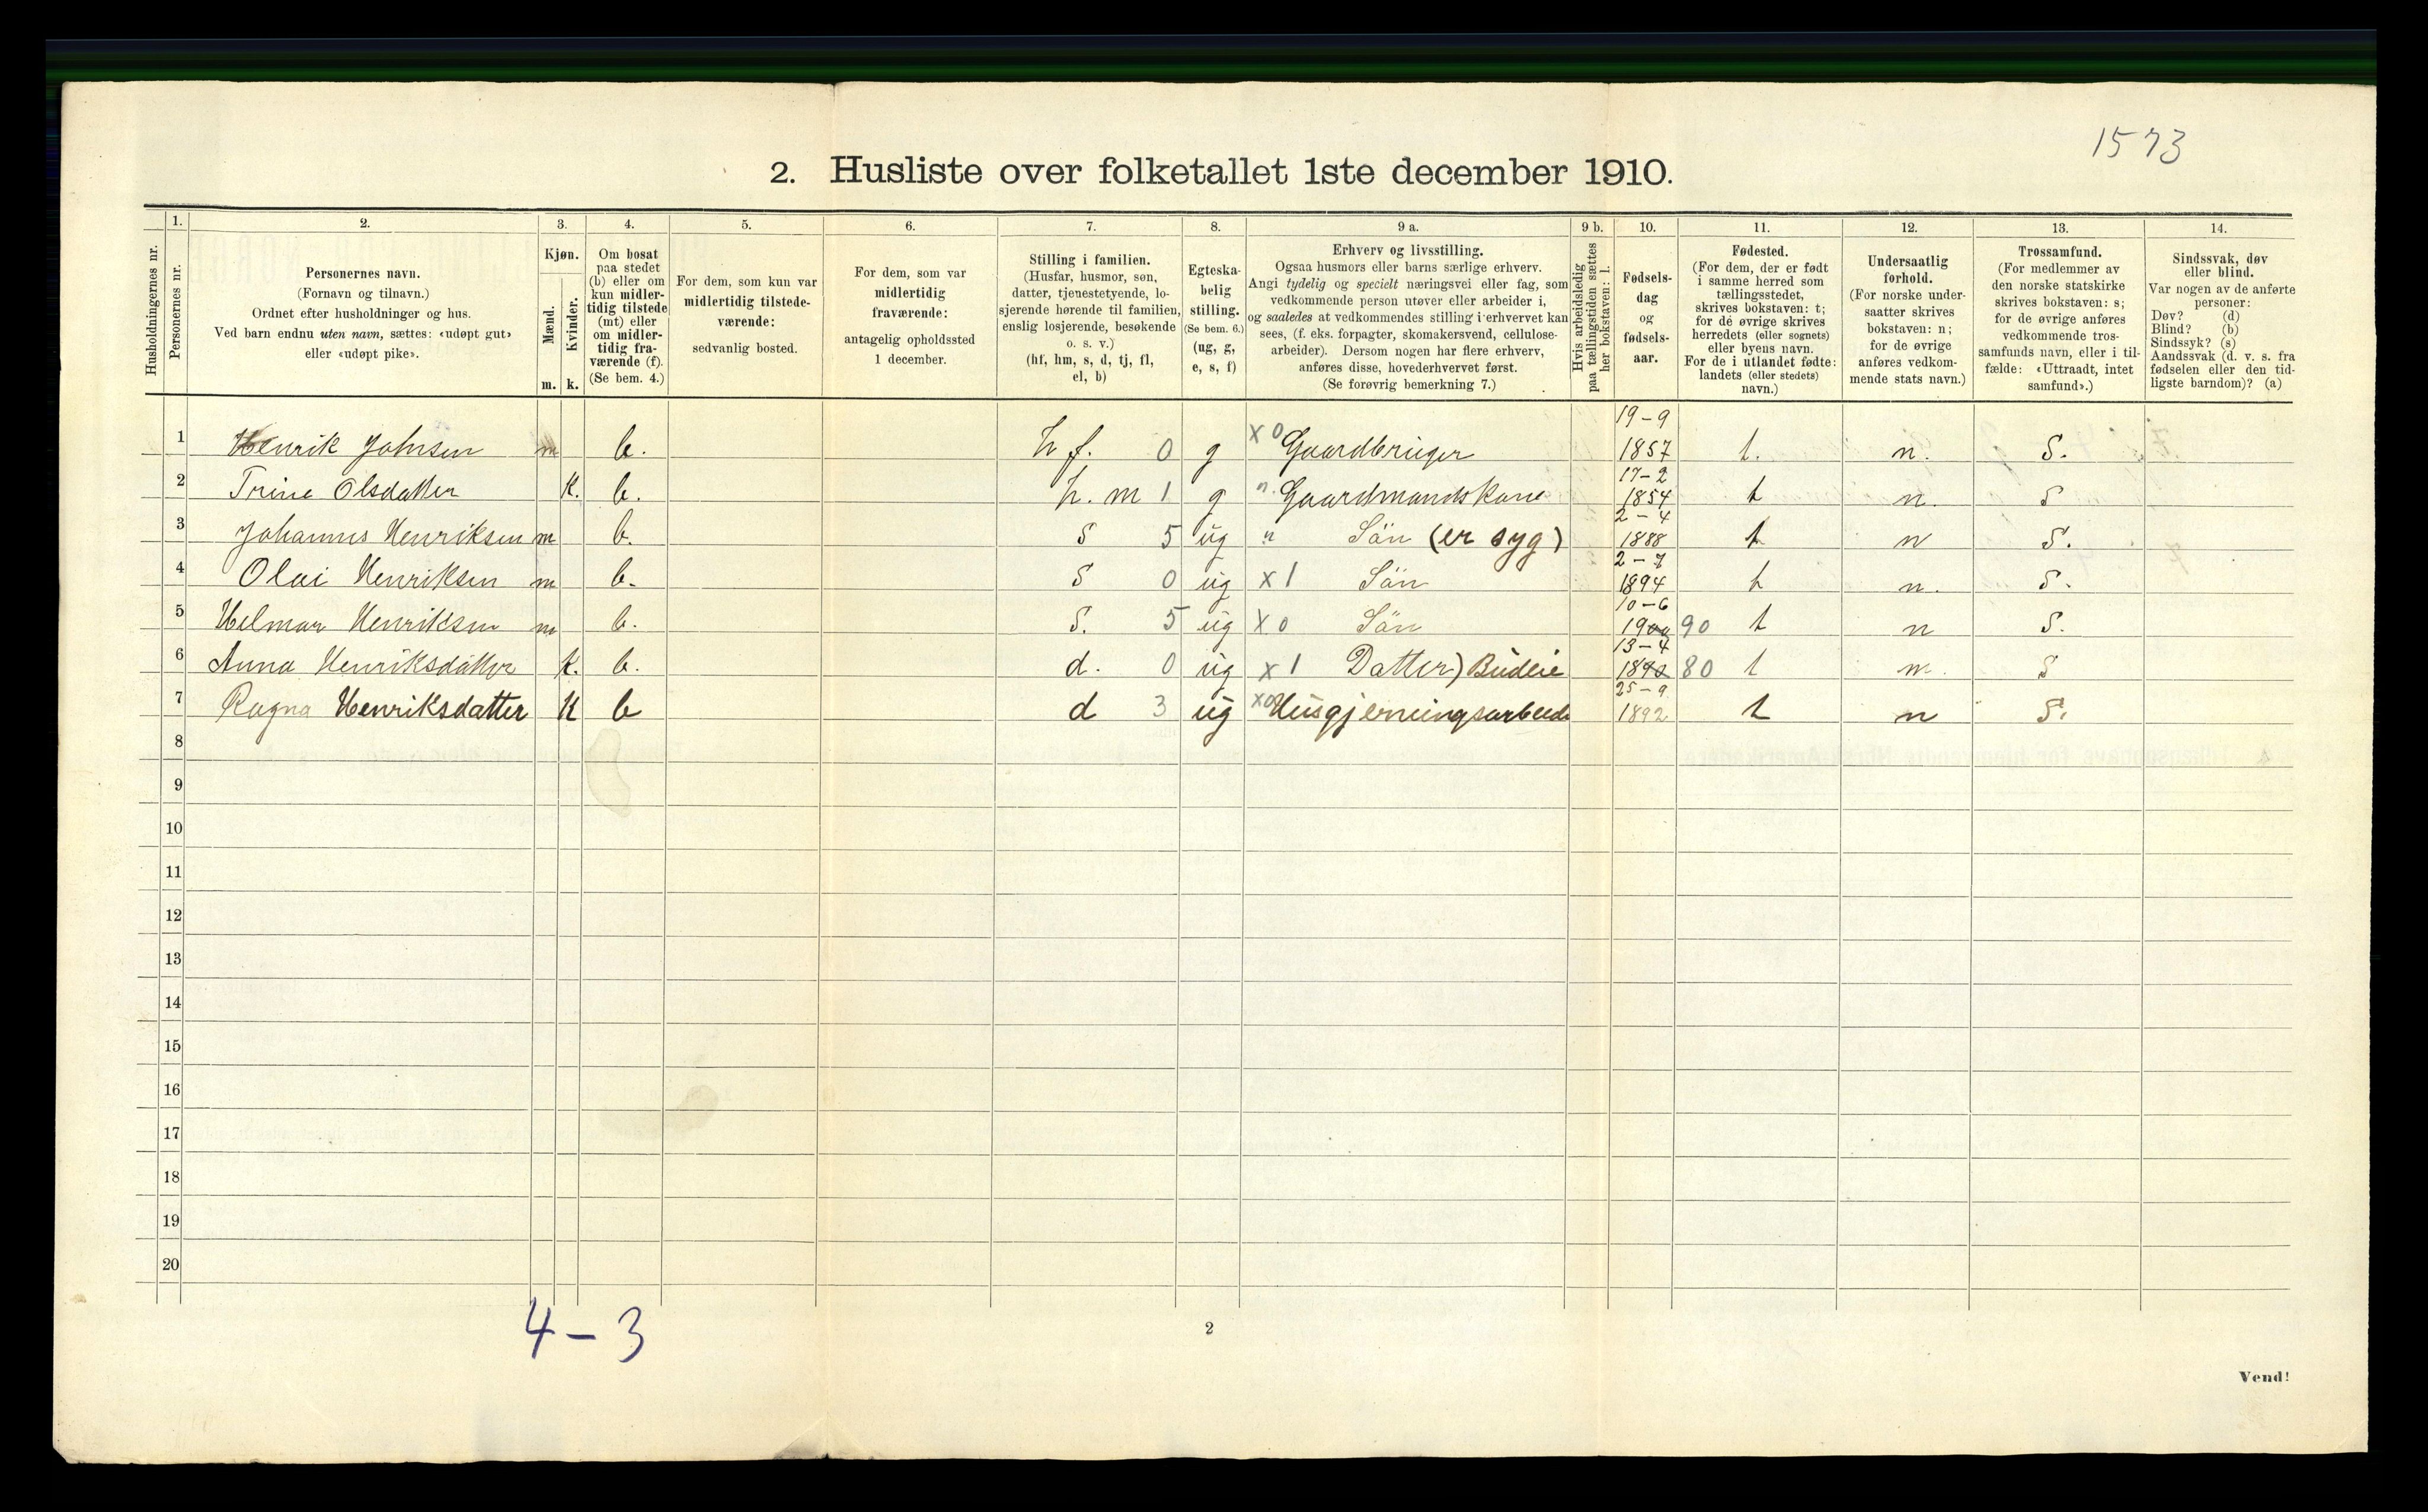 1573
2. Husliste over folketallet 1ste december 1910.
1. 2. 3. 4. 5. 6. 7. 8. 9 a. 9 b. 10. 11. 12. 13. 14.
Husholdningernes nr.
Personernes nr.
Personernes navn.
(Fornavn og tilnavn.)
Ordnet efter husholdninger og hus.
Ved barn endnu uten navn, sættes: «udøpt gut»
eller «udøpt pike».
Kjøn.
Mænd.
Kvinder.
m. k.
Om bosat
paa stedet
(b) eller om
kun midler-
tidig tilstede
(mt) eller
om midler-
tidig fra-
værende (f).
(Se bem. 4.)
For dem, som kun var
midlertidig tilstede-
værende:
sedvanlig bosted.
For dem, som var
midlertidig
fraværende:
antagelig opholdssted
1 december.
Stilling i familien.
(Husfar, husmor, søn,
datter, tjenestetyende, lo-
sjerende hørende til familien,
enslig losjerende, besøkende
o. s. v.)
(hf, hm, s, d, tj, fl,
el, b)
Egteska-
belig
stilling.
(Se bem. 6.)
(ug, g,
e, s, f)
Erhverv og livsstilling.
Ogsaa husmors eller barns særlige erhverv.
Angi tydelig og specielt næringsvei eller fag, som
vedkommende person utøver eller arbeider i,
og saaledes at vedkommendes stilling i erhvervet kan
sees, (f. eks. forpagter, skomakersvend, cellulose-
arbeider). Dersom nogen har flere erhverv,
anføres disse, hovederhvervet først.
(Se forøvrig bemerkning 7.)
Hvis arbeidsledig
paa tællingstiden sættes
her bokstaven: l.
Fødsels-
dag
og
fødsels-
aar.
Fødested.
(For dem, der er født
i samme herred som
tællingsstedet,
skrives bokstaven: t;
for de øvrige skrives
herredets (eller sognets)
eller byens navn.
For de i utlandet fødte:
landets (eller stedets)
navn.)
Undersaatlig
forhold.
(For norske under-
saatter skrives
bokstaven: n;
for de øvrige
anføres vedkom-
mende stats navn.)
Trossamfund.
(For medlemmer av
den norske statskirke
skrives bokstaven: s;
for de øvrige anføres
vedkommende tros-
samfunds navn, eller i til-
fælde: «Uttraadt, intet
samfund».)
Sindssvak, døv
eller blind.
Var nogen av de anførte
personer:
Døv? (d)
Blind? (b)
Sindssyk? (s)
Aandssvak (d. v. s. fra
fødselen eller den tid-
ligste barndom)? (a)
1 Henrik Johnsen m b. h f. 0 g x 0 Gaardbruger 19-9 1857 t. n. S.
2 Trine Olsdatter K. b. h. m 1 g " Gaardmandskone 17-2 1854 t n. S
3 Johannes Henriksen m b. S 5 ug " Sön (er syg) 2-4 1888 t n S.
4 Olai Henriksen m b. S 0 ug x 1 Sön 2-7 1894 t n. S.
5 Helmar Henriksen m b. S. 5 ug x 0 Sön 10-6 1900 90 t n S.
6 Anna Henriksdatter K. b. d. 0 ug x 1 Datter) Budeie 13-4 80 t n. S
7 Ragna Henriksdatter K b d 3 ug x0 Husgjerningsarbeide 25-9 1892 t n S.
8
9
10
11
12
13
14
15
16
17
18
19
20
4-3
2
Vend!